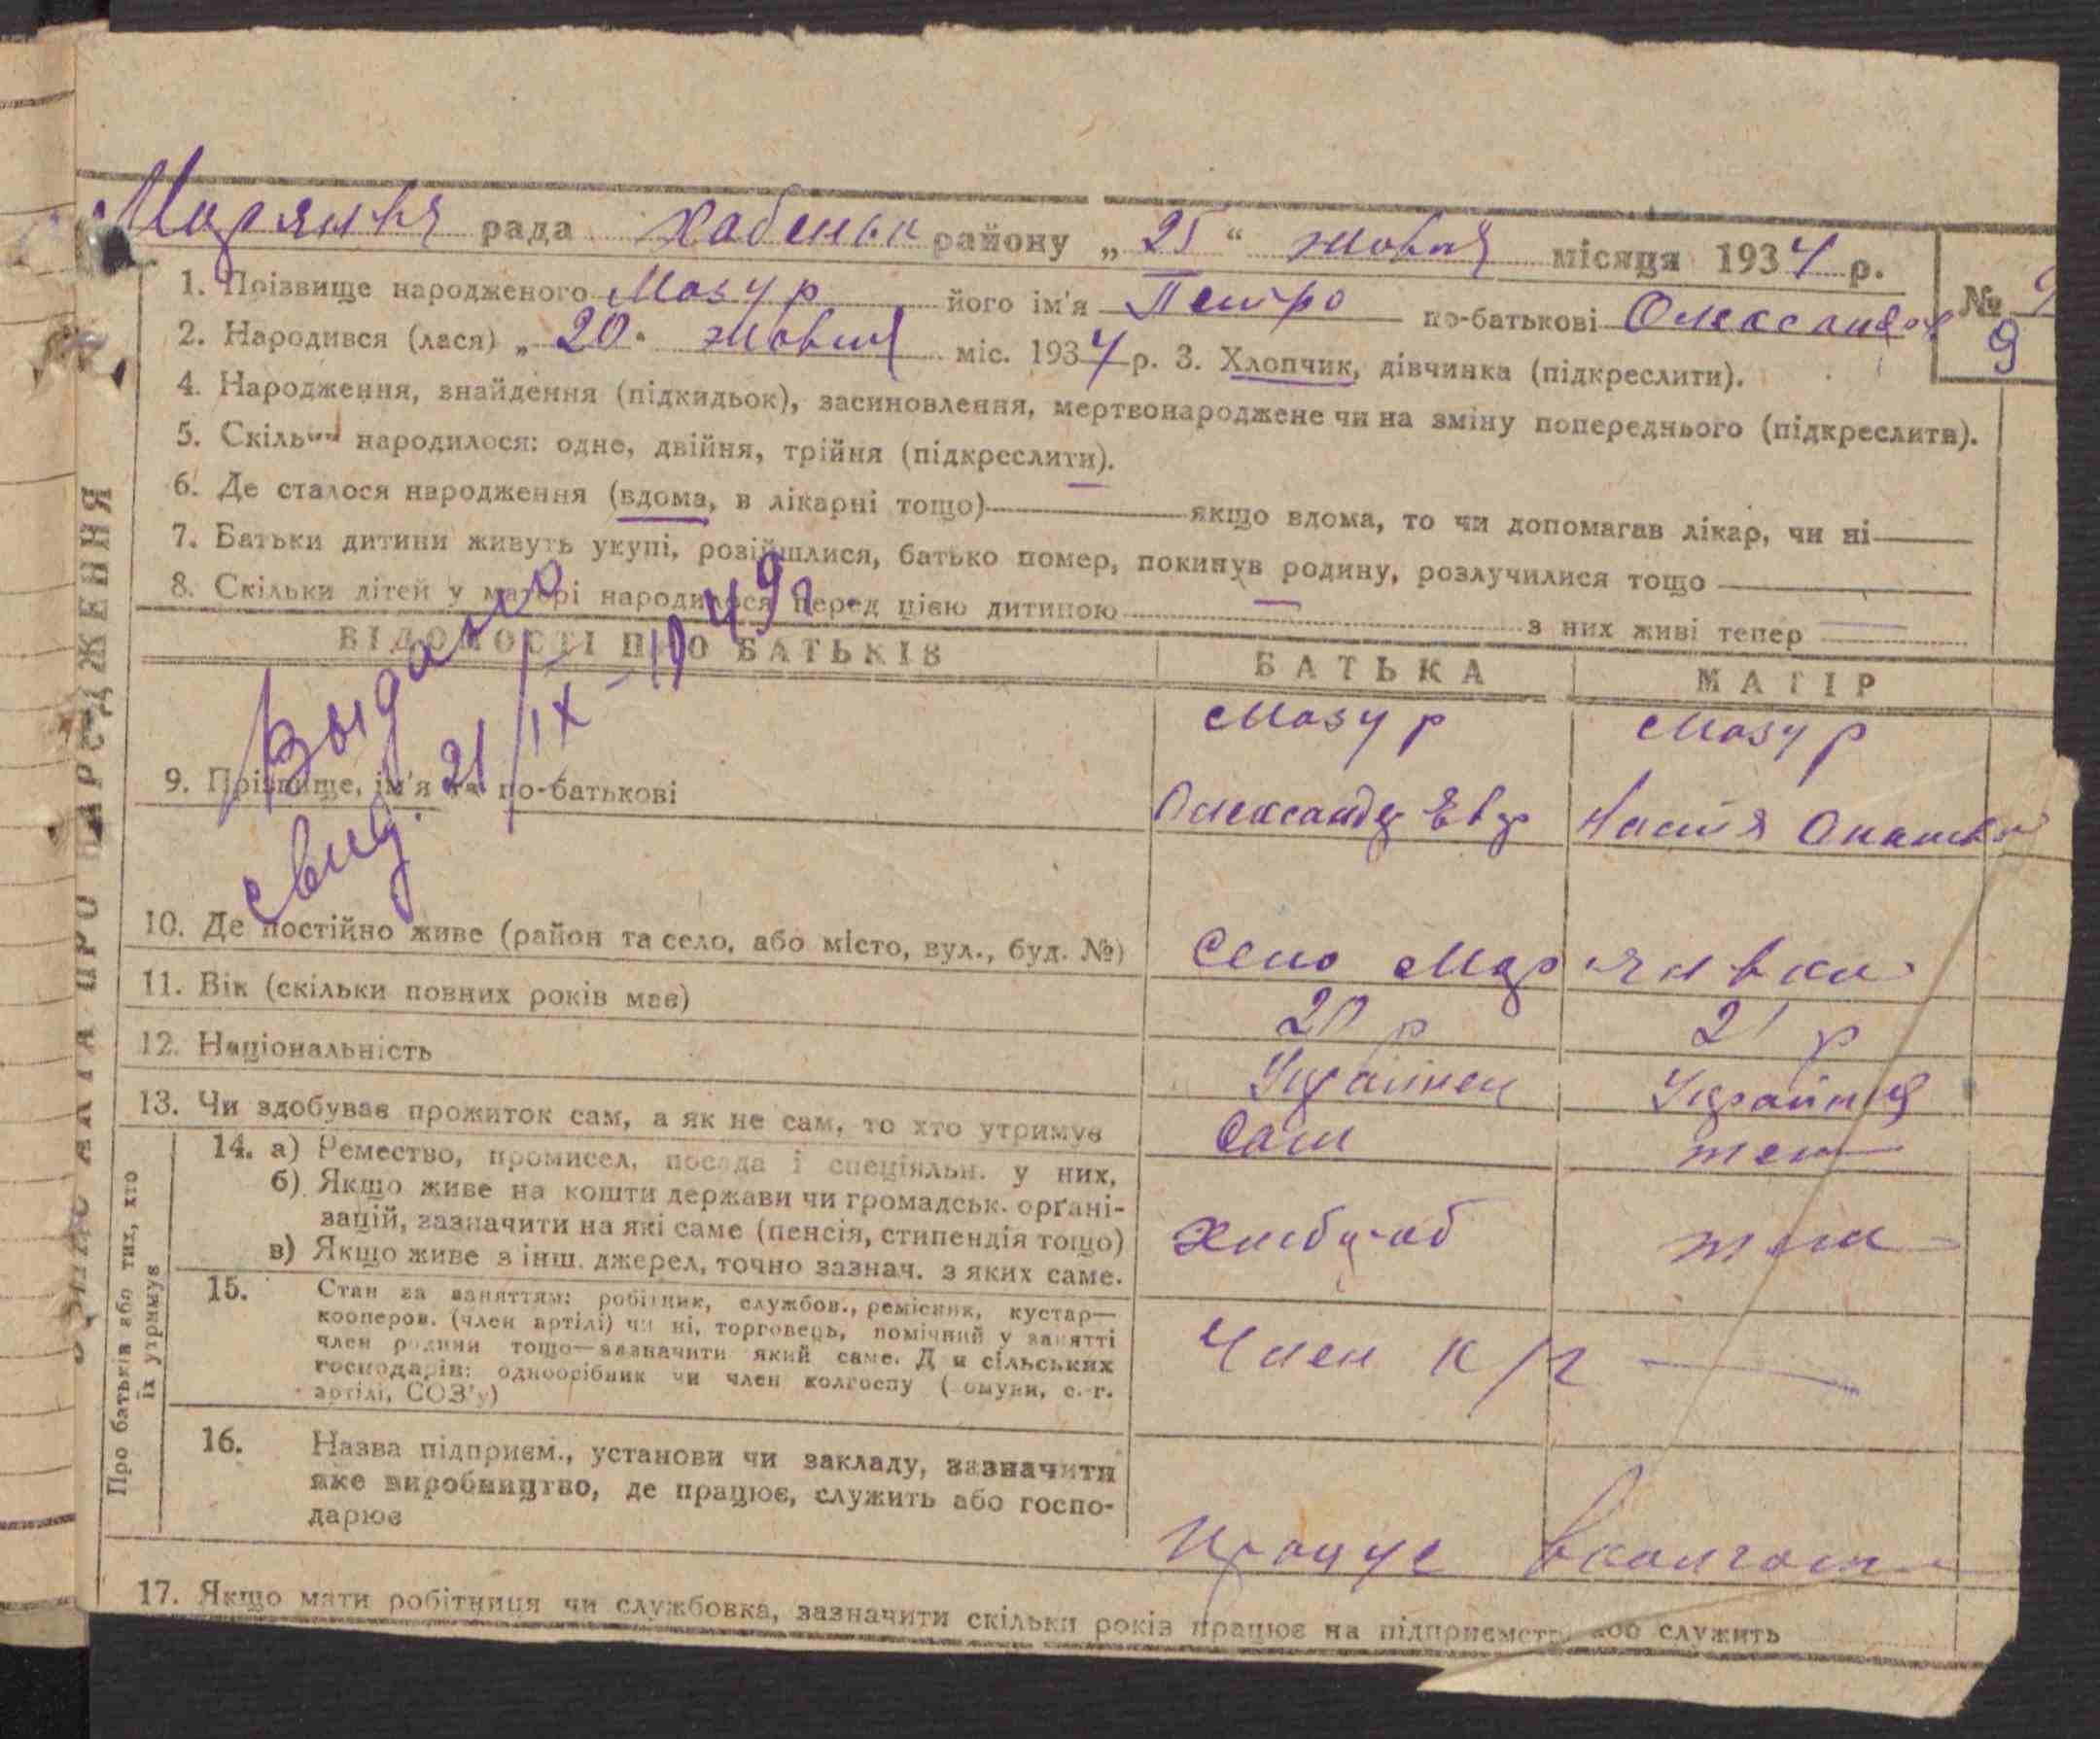 Марянівя рада Хабенськ району „25“ жовтня місяця 1934 р.
№ 9
9
1. Прізвище народженого Мазур його ім'я Петро по-батькові Олександ
2. Народився (лася) „20“ жовтня міс. 1934 р. 3. Хлопчик, дівчинка (підкреслити).
4. Народження, знайдення (підкидьок), засиновлення, мертвонароджене чи на зміну попереднього (підкреслити).
5. Скільки народилося: одне, двійня, трійня (підкреслити).
6. Де сталося народження (вдома, в лікарні тощо) — якщо вдома, то чи допомагав лікар, чи ні —
7. Батьки дитини живуть укупі, розійшлися, батько помер, покинув родину, розлучилися тощо —
8. Скільки дітей у матері народилося перед цією дитиною — з них живі тепер —
ВІДОМОСТІ ПРО БАТЬКІВ БАТЬКА МАТІР
Выдано
свид. 21/IX-1949г
9. Прізвище, ім'я та по-батькові
Мазур Мазур
Олександр Евг Настя Опанасів
10. Де постійно живе (район та село, або місто, вул., буд. №) Село Мар'янівка
11. Вік (скільки повних років має) 20 р 21 р
12. Національність Українец Українця
13. Чи здобуває прожиток сам, а як не сам, то хто утримує Сам теж
14. а) Ремество, промисел, посада і спеціяльн. у них,
б) Якщо живе на кошти держави чи громадськ. орґані-
зацій, зазначити на які саме (пенсія, стипендія тощо) Хлібороб теж
в) Якщо живе з інш. джерел, точно зазнач. з яких саме.
15. Стан за заняттям: робітник, службов., ремісник, кустар—
кооперов. (член артілі) чи ні, торговець, помічний у занятті
член родини тощо—зазначити який саме. Для сільських
господарів: одноосібник чи член колгоспу (комуни, с.-г.
артілі, СОЗ'у)
Член к/г —
16. Назва підприєм., установи чи закладу, зазначити
яке виробництво, де працює, служить або госпо-
дарює
Працює в колгосп
17. Якщо мати робітниця чи службовка, зазначити скільки років працює на підприємстві або служить
Про батьків або тих, хто
їх утримує
ЗАПИС АКТА ПРО НАРОДЖЕННЯ